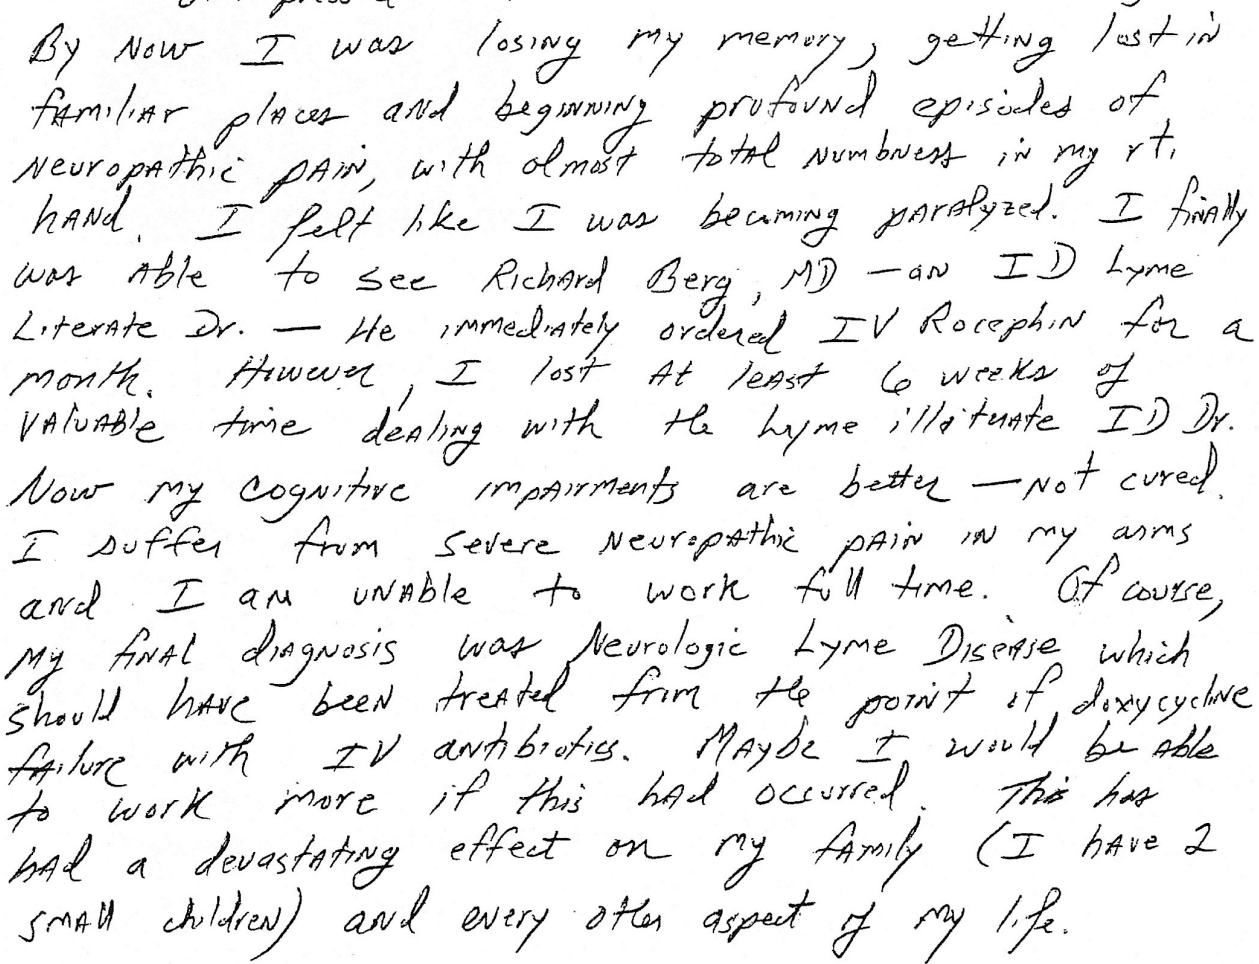 By now I was losing my memory, getting lost in
familiar places and beginning profound episodes of
neuropathic pain, with almost total numbness in my rt.
hand. I felt like I was becoming paralyzed. I finally
was able to see Richard Berg, MD — an ID Lyme
Literate Dr. — He immediately ordered IV Rocephin for a
month. However, I lost at least 6 weeks of
valuable time dealing with the Lyme illiterate ID Dr.
Now my cognitive impairments are better — not cured.
I suffer from severe neuropathic pain in my arms
and I am unable to work full time. Of course,
my final diagnosis was Neurologic Lyme Disease which
should have been treated from the point of doxycycline
failure with IV antibiotics. Maybe I would be able
to work more if this had occurred. This has
had a devastating effect on my family (I have 2
small children) and every other aspect of my life.